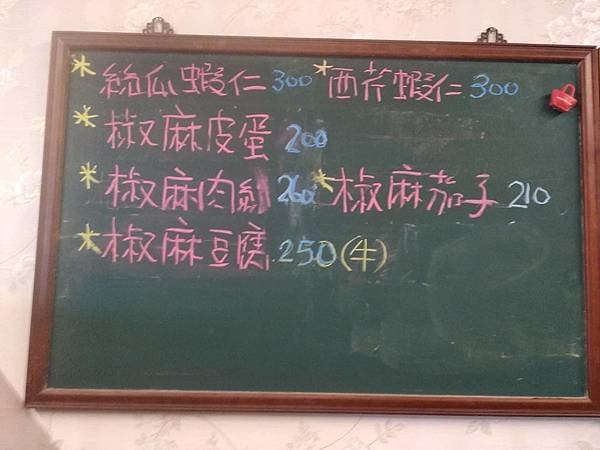 *絲瓜蝦仁 300 *西芹蝦仁 300
*椒麻皮蛋 200
*椒麻肉絲 260 *椒麻茄子 210
*椒麻豆腐 250(牛)